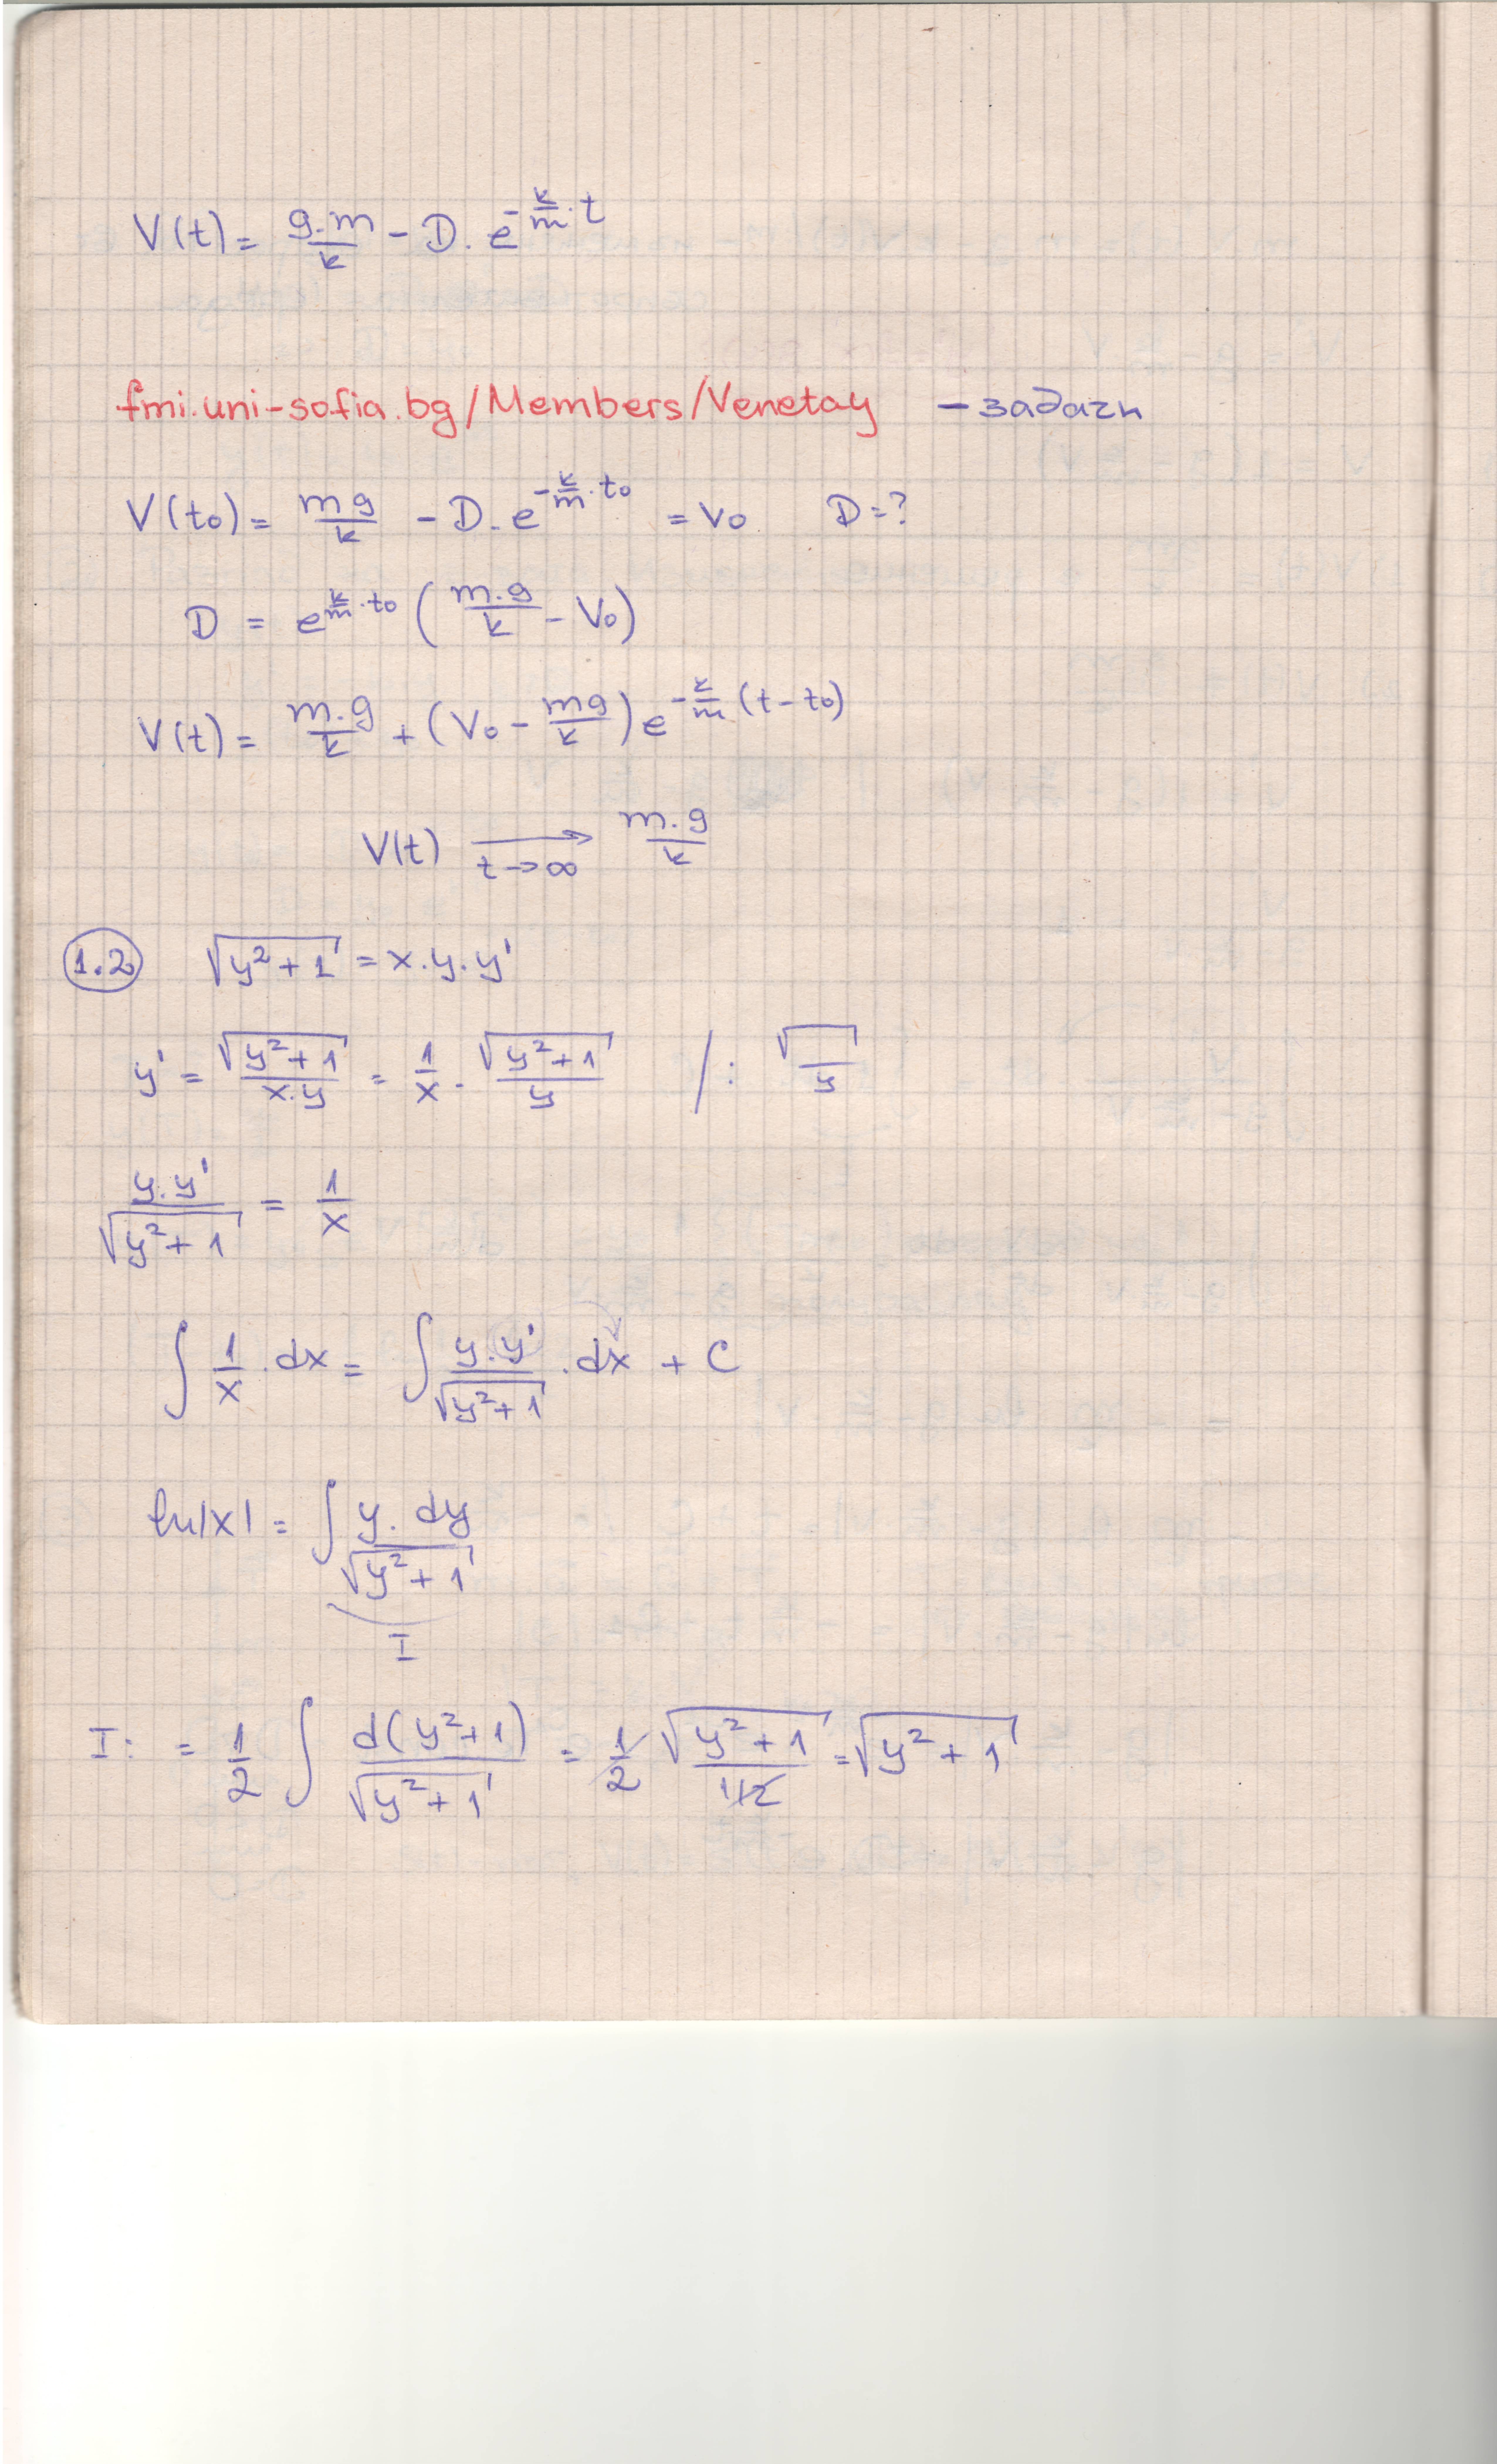 V(t) = g.m/k - D. e^(-k/m . t)
fmi.uni-sofia.bg/Members/Venetay - задачи
V(t₀) = mg/k - D. e^(-k/m . t₀) = v₀ D=?
D = e^(k/m . t₀) (m.g/k - V₀)
V(t) = m.g/k + (V₀ - mg/k) e^(-k/m (t-t₀))
V(t) →(t→∞) m.g/k
1.2 √(y²+1) = x.y.y'
y' = √(y²+1)/(x.y) = 1/x . √(y²+1)/y /: √/y
y.y'/√(y²+1) = 1/x
∫ 1/x .dx = ∫ y.y'/√(y²+1) .dx + C
ln|x| = ∫ y. dy/√(y²+1)
I
I: = 1/2 ∫ d(y²+1)/√(y²+1) = 1/2 √(y²+1)/(1/2) = √(y²+1)